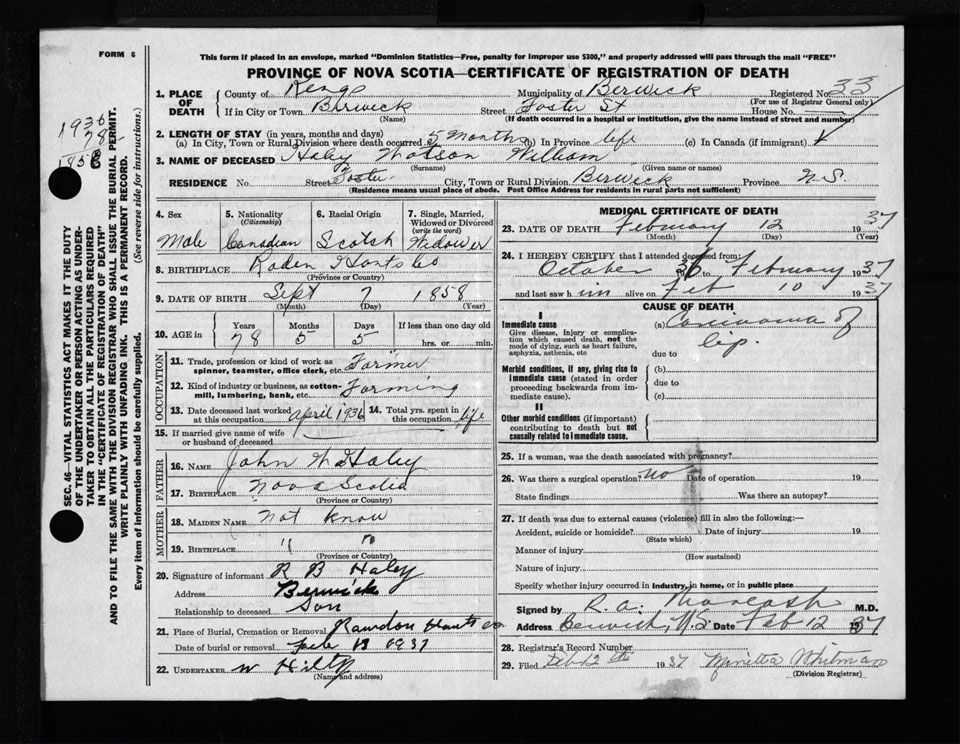 FORM 6
This form if placed in an envelope, marked "Dominion Statistics—Free, penalty for improper use $300," and properly addressed will pass through the mail "FREE"
PROVINCE OF NOVA SCOTIA—CERTIFICATE OF REGISTRATION OF DEATH
SEC. 46—VITAL STATISTICS ACT MAKES IT THE DUTY
OF THE UNDERTAKER OR PERSON ACTING AS UNDER-
TAKER TO OBTAIN ALL THE PARTICULARS REQUIRED
IN THE "CERTIFICATE OF REGISTRATION OF DEATH"
AND TO FILE THE SAME WITH THE DIVISION REGISTRAR WHO SHALL ISSUE THE BURIAL PERMIT.
WRITE PLAINLY WITH UNFADING INK. THIS IS A PERMANENT RECORD.
Every item of information should be carefully supplied. (See reverse side for instructions.)
1936
78
1858
1. PLACE OF DEATH
County of Kings Municipality of Berwick Registered No. 33
(For use of Registrar General only)
If in City or Town Berwick Street Foster St House No.
(Name) (If death occurred in a hospital or institution, give the name instead of street and number)
2. LENGTH OF STAY (in years, months and days)
(a) In City, Town or Rural Division where death occurred 5 Months (b) In Province life (c) In Canada (if immigrant)
3. NAME OF DECEASED Haley Watson William
(Surname) (Given name or names)
RESIDENCE No Street Foster City, Town or Rural Division Berwick Province N.S.
(Residence means usual place of abode. Post Office Address for residents in rural parts not sufficient)
4. Sex 5. Nationality 6. Racial Origin 7. Single, Married,
(Citizenship) Widowed or Divorced
(write the word)
Male Canadian Scotch Widower
8. BIRTHPLACE Hants Co
(Province or County)
9. DATE OF BIRTH Sept 7 1858
(Month) (Day) (Year)
10. AGE in Years Months Days If less than one day old
78 5 5 hrs. or min.
OCCUPATION
11. Trade, profession or kind of work as
spinner, teamster, office clerk, etc. Farmer
12. Kind of industry or business, as cotton-
mill, lumbering, bank, etc. Farming
13. Date deceased last worked at this occupation April 1936 14. Total yrs. spent in this occupation life
15. If married give name of wife
or husband of deceased
FATHER
16. NAME John W Haley
17. BIRTHPLACE Nova Scotia
(Province or Country)
MOTHER
18. MAIDEN NAME Not know
19. BIRTHPLACE " "
(Province or Country)
20. Signature of informant R B Haley
Address Berwick
Relationship to deceased Son
21. Place of Burial, Cremation or Removal Rawdon Hants Co
Date of burial or removal 13 1937
22. UNDERTAKER W
(Name and address)
MEDICAL CERTIFICATE OF DEATH
23. DATE OF DEATH February 12 1937
(Month) (Day) (Year)
24. I HEREBY CERTIFY that I attended deceased from:
October 36 to February 1937
and last saw him alive on Feb 10 1937
CAUSE OF DEATH
I
Immediate cause
Give disease, injury or complica-
tion which caused death, not the
mode of dying, such as heart failure,
asphyxia, asthenia, etc
(a) Carcinoma of
lip.
due to
Morbid conditions, if any, giving rise to
immediate cause (stated in order
proceeding backwards from im-
mediate cause).
(b)
due to
(c)
II
Other morbid conditions (if important)
contributing to death but not
causally related to immediate cause.
25. If a woman, was the death associated with pregnancy?
26. Was there a surgical operation? No Date of operation 19
State findings Was there an autopsy?
27. If death was due to external causes (violence) fill in also the following:—
Accident, suicide or homicide? Date of injury 19
(State which)
Manner of injury
(How sustained)
Nature of injury
Specify whether injury occurred in industry, in home, or in public place
Signed by R. A. M.D.
Address Berwick, N.S. Date Feb 12 1937
28. Registrar's Record Number
29. Filed Feb 12th 1937 Whitman
(Division Registrar)